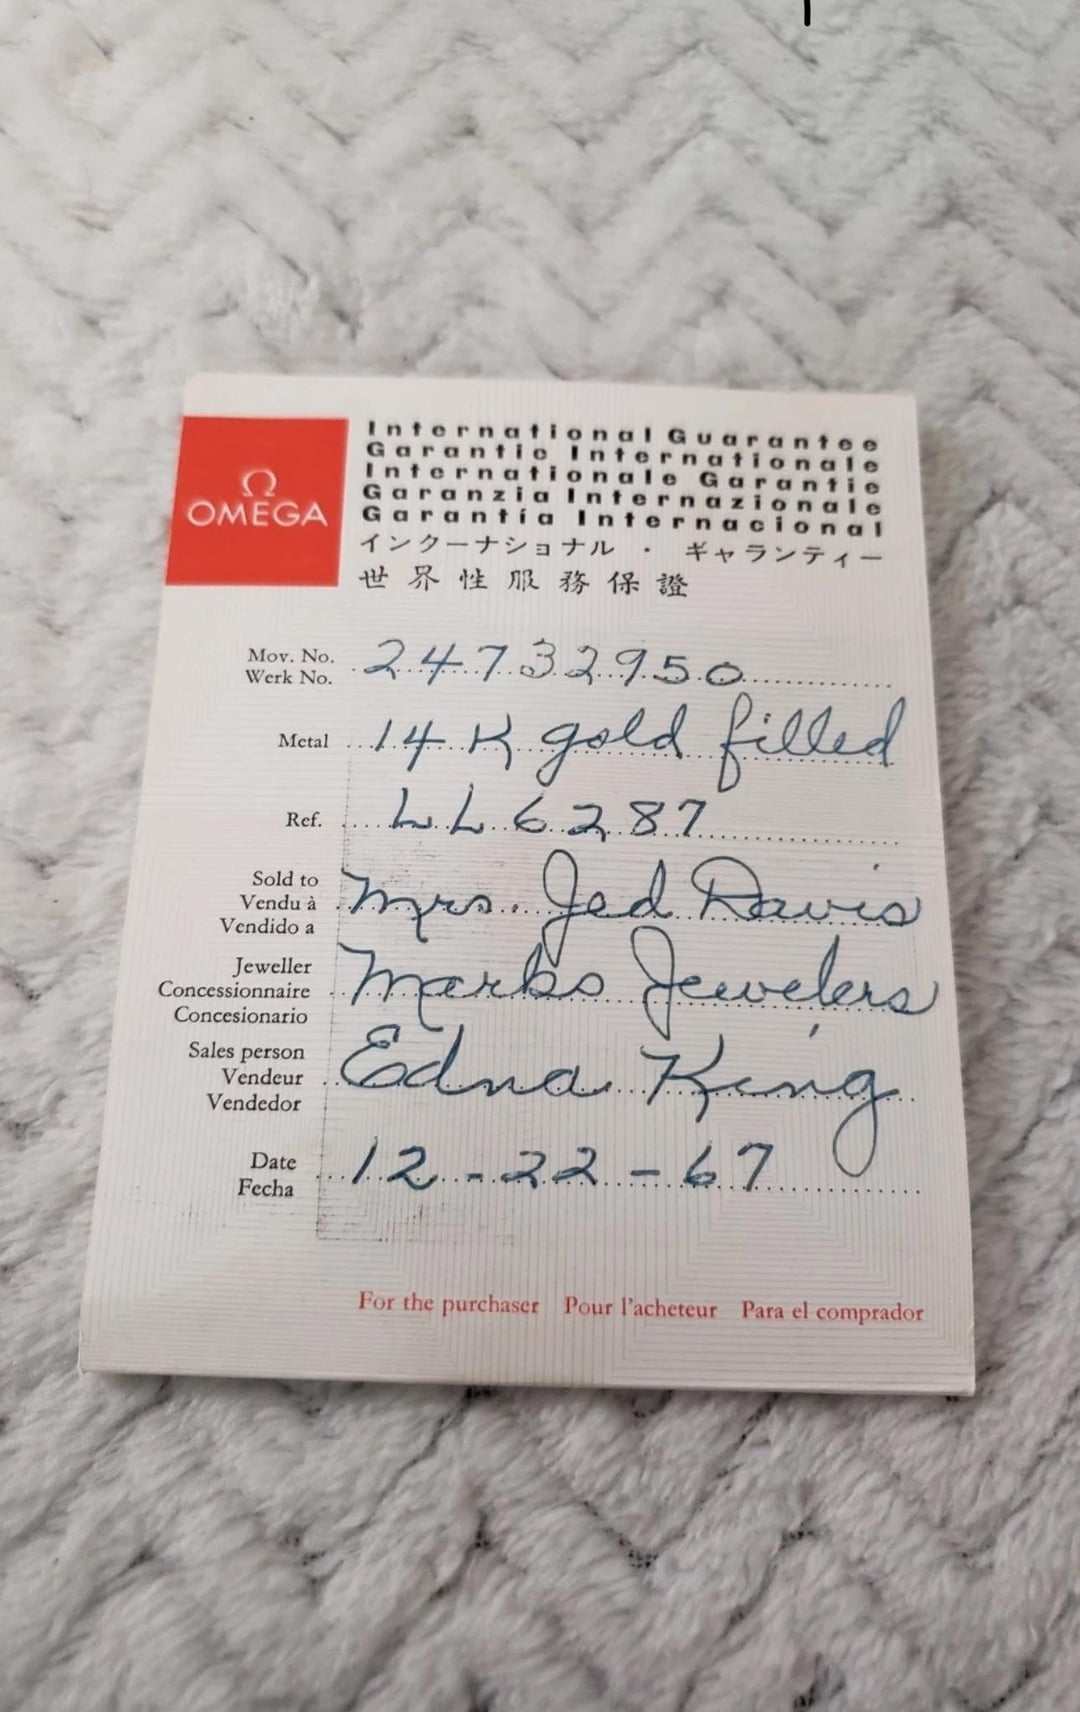 Ω
OMEGA
International Guarantee
Garantie Internationale
Internationale Garantie
Garanzia Internazionale
Garantía Internacional
インターナショナル ・ ギャランティー
世界性服務保證
Mov. No. 24732950
Werk No.
Metal 14 K gold filled
Ref. LL 6287
Sold to Mrs. Jed Davis
Vendu à
Vendido a
Jeweller Marks Jewelers
Concessionnaire
Concesionario
Sales person Edna King
Vendeur
Vendedor
Date 12-22-67
Fecha
For the purchaser Pour l'acheteur Para el comprador